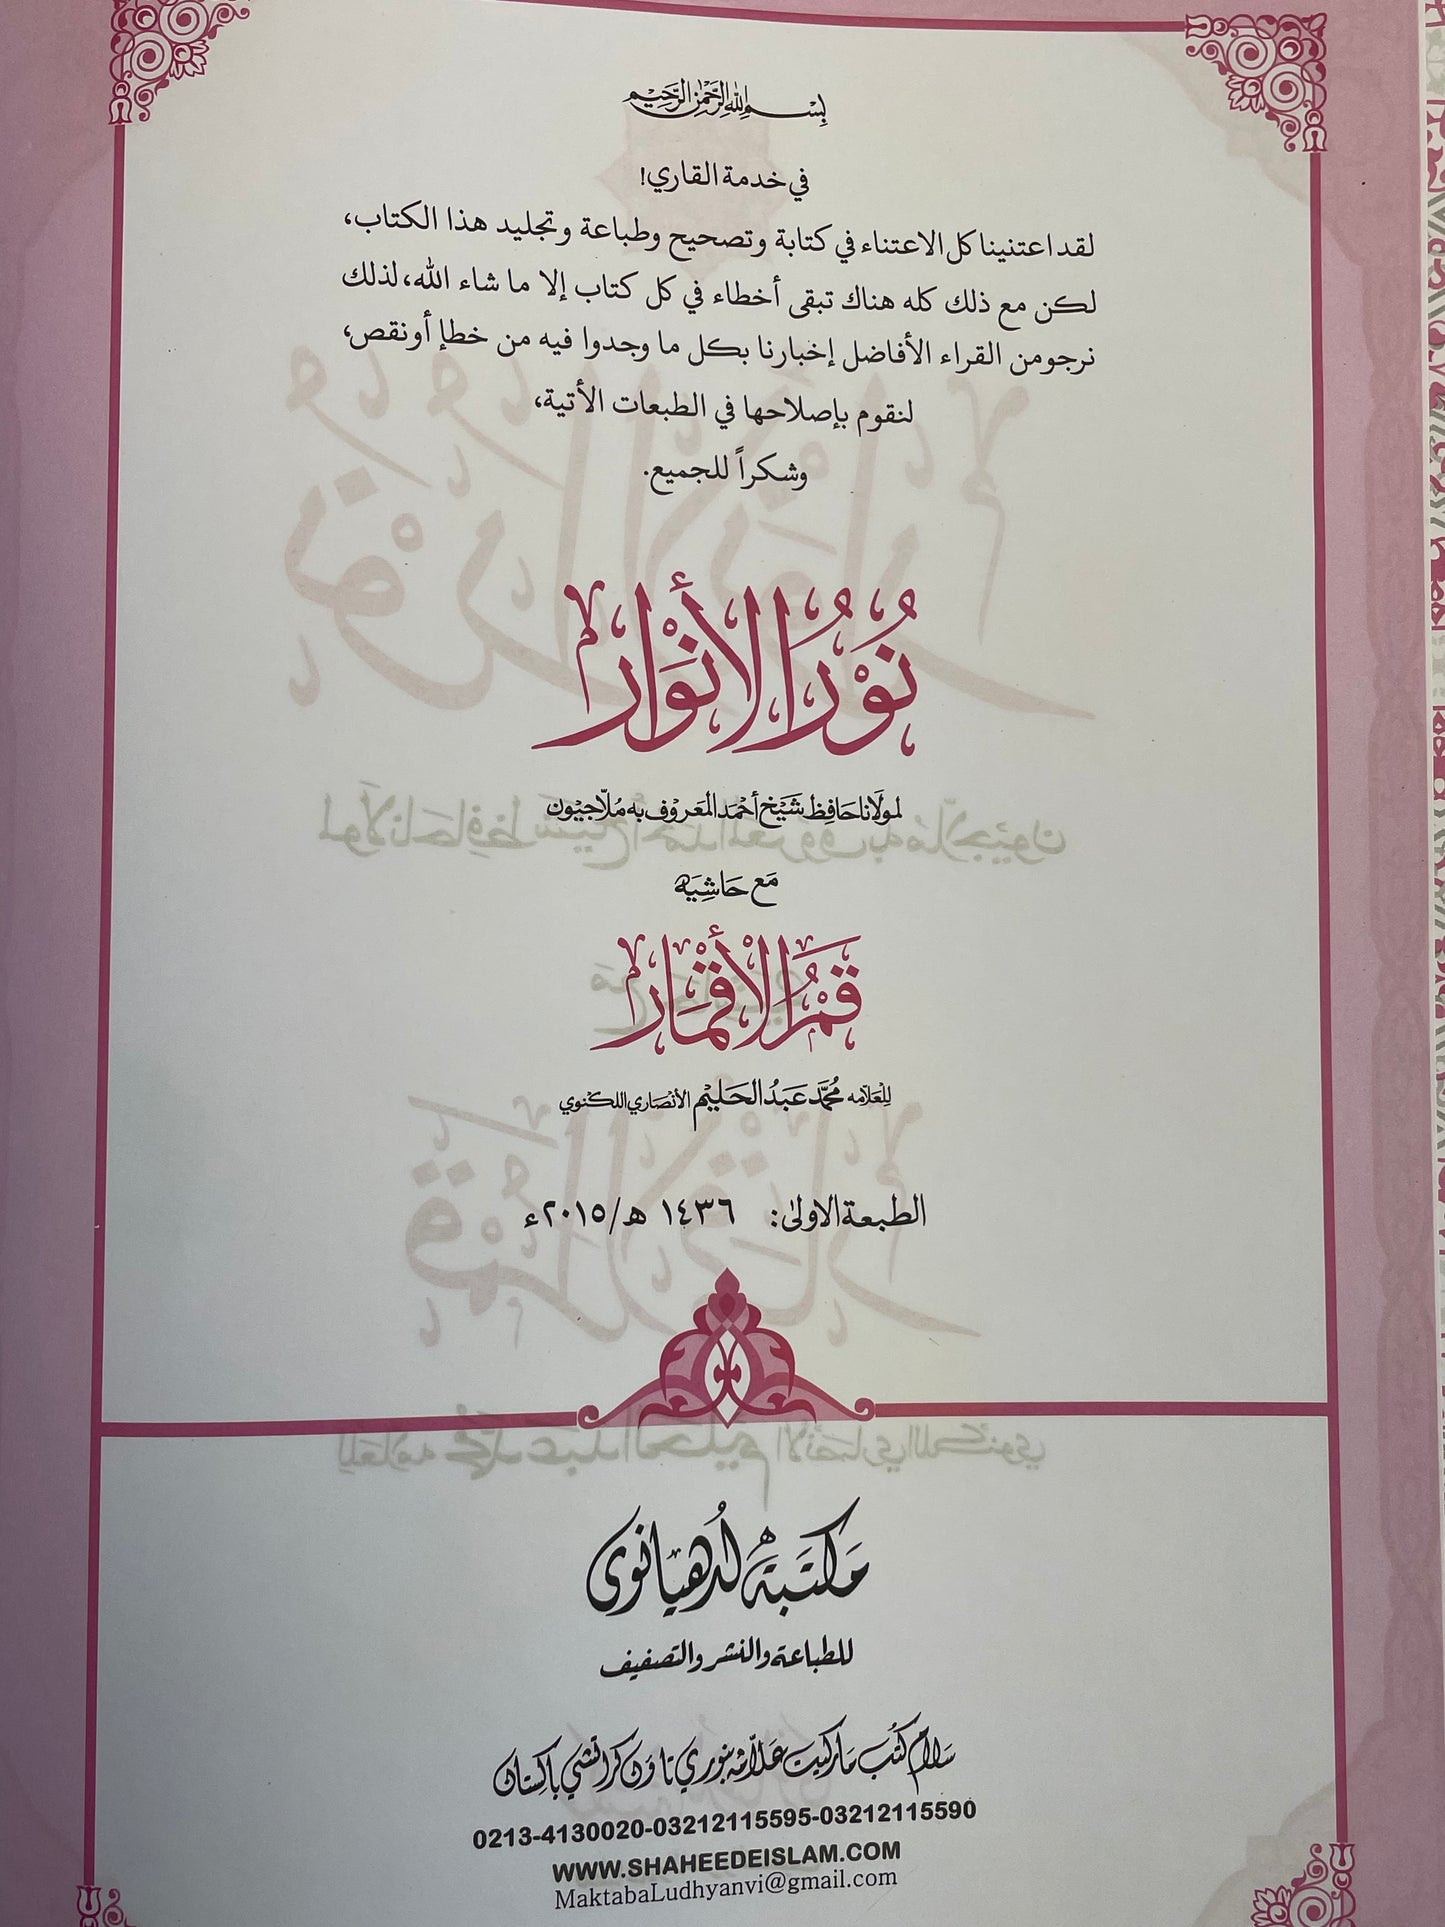 بسم الله الرحمن الرحيم
في خدمة القاري!
لقد اعتنينا كل الاعتناء في كتابة وتصحيح وطباعة وتجليد هذا الكتاب،
لكن مع ذلك كله هناك تبقى أخطاء في كل كتاب إلا ما شاء الله، لذلك
نرجومن القراء الأفاضل إخبارنا بكل ما وجدوا فيه من خطإ أونقص،
لنقوم بإصلاحها في الطبعات الأتية،
وشكراً للجميع.
نُوْرُ الأَنْوَار
لمولَانا حَافِظ شَيْخ أحْمَد المَعرُوْف به مُلّا جِيْون
مَع حَاشِيَه
قَمَرُ الأَقْمَار
لِلعَلاّمه مُحَمَّد عَبدُ الحَليْم الأنْصَاري اللكنوي
الطبعة الاولىٰ: ١٤٣٦ هـ/٢٠١٥ء
مَكتَبَهْ لُدھیانوی
للطباعة والنشر والتصفيف
سَلام كُتُب مَاركيت عَلاّمَه بنوري تاؤن كراتشي باكستان
0213-4130020-03212115595-03212115590
WWW.SHAHEEDEISLAM.COM
MaktabaLudhyanvi@gmail.com